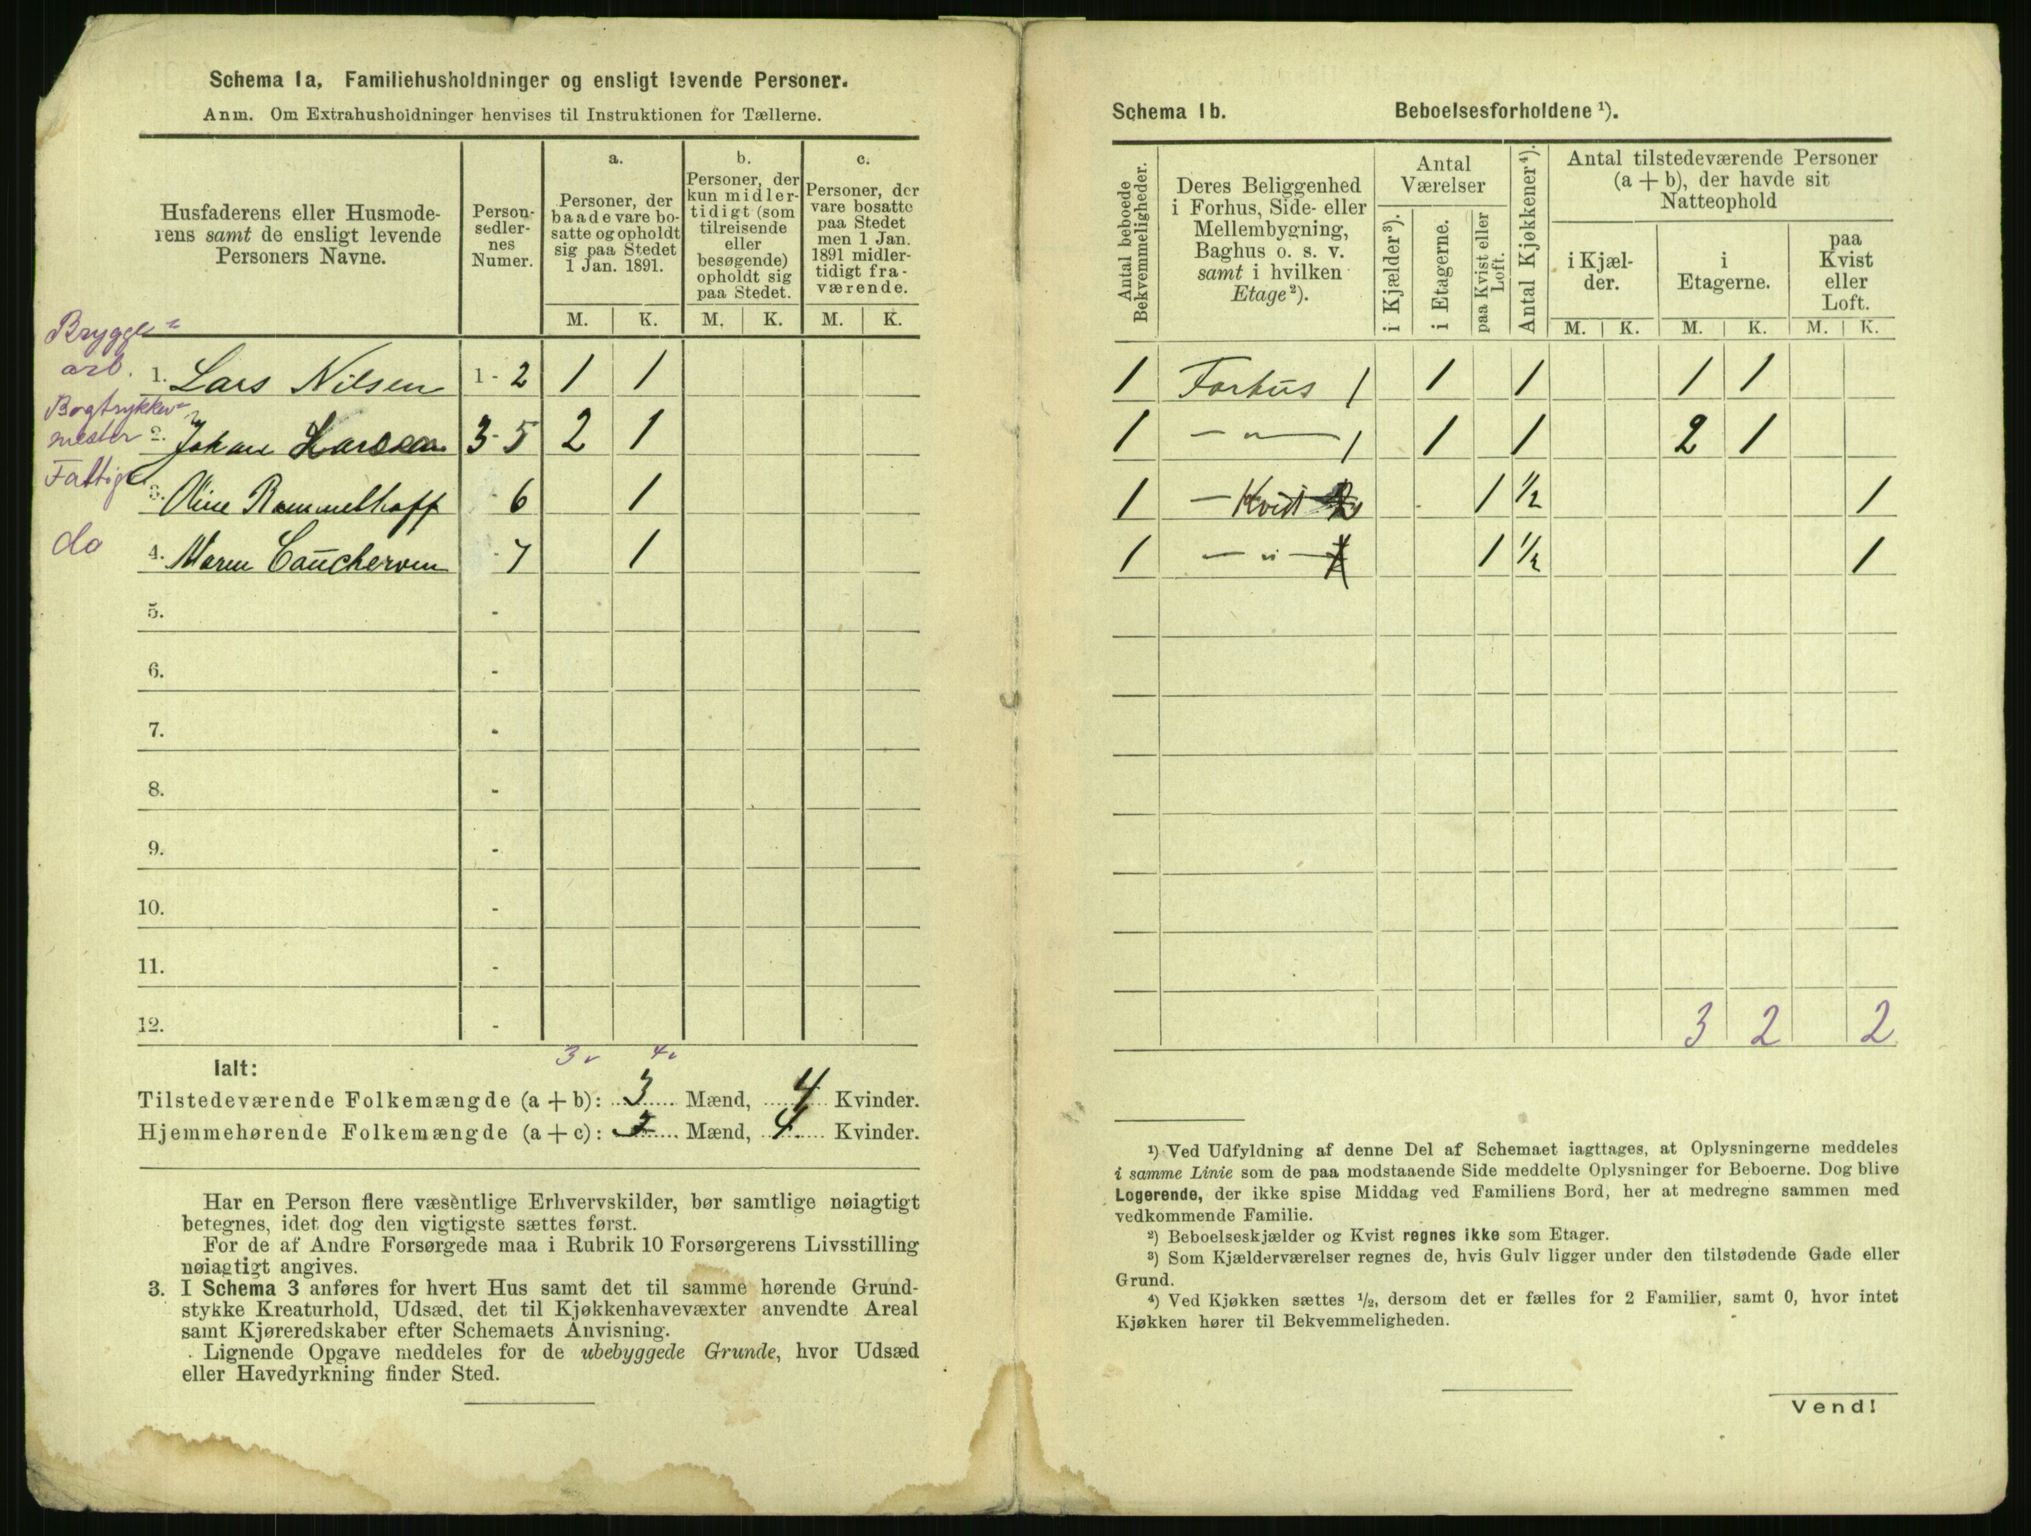 Schema 1a. Familiehusholdninger og ensligt levende Personer.
Anm. Om Extrahusholdninger henvises til Instruktionen for Tællerne.
Husfaderens eller Husmode-
rens samt de ensligt levende
Personers Navne.
Person-
sedler-
nes
Numer.
a.
Personer, der
baade vare bo-
satte og opholdt
sig paa Stedet
1 Jan. 1891.
b.
Personer, der
kun midler-
tidigt (som
tilreisende
eller
besøgende)
opholdt sig
paa Stedet.
c.
Personer, der
vare bosatte
paa Stedet
men 1 Jan.
1891 midler-
tidigt fra-
værende.
M. K. M. K. M. K.
Brygge-
arb. 1. Lars Nilsen 1 - 2 1 1
Bogtrykker-
mester 2. Johan Larsen 3 - 5 2 1
Fattig 3. Oline Rommelhoff - 6 1
do 4. Maren - 7 1
5. -
6. -
7. -
8. -
9. -
10. -
11. -
12. -
3 v 4 v
Ialt:
Tilstedeværende Folkemængde (a + b): 3 Mænd, 4 Kvinder.
Hjemmehørende Folkemængde (a + c): 3 Mænd, 4 Kvinder.
Har en Person flere væsentlige Erhvervskilder, bør samtlige nøiagtigt
betegnes, idet dog den vigtigste sættes først.
For de af Andre Forsørgede maa i Rubrik 10 Forsørgerens Livsstilling
nøiagtigt angives.
3. I Schema 3 anføres for hvert Hus samt det til samme hørende Grund-
stykke Kreaturhold, Udsæd, det til Kjøkkenhavevæxter anvendte Areal
samt Kjøreredskaber efter Schemaets Anvisning.
Lignende Opgave meddeles for de ubebyggede Grunde, hvor Udsæd
eller Havedyrkning finder Sted.
Schema 1b. Beboelsesforholdene ¹).
Antal beboede
Bekvemmeligheder.
Deres Beliggenhed
i Forhus, Side- eller
Mellembygning,
Baghus o. s. v.
samt i hvilken
Etage²).
Antal
Værelser
i Kjælder³).
i Etagerne.
paa Kvist eller
Loft.
Antal Kjøkkener⁴).
Antal tilstedeværende Personer
(a + b), der havde sit
Natteophold
i Kjæl-
der.
i
Etagerne.
paa
Kvist
eller
Loft.
M. K. M. K. M. K.
1 Forhus 1 1 1 1 1
1 — " — 1 1 1 2 1
1 — Kvist 1 ½ 1
1 — " — 1 ½ 1
3 2 2
¹) Ved Udfyldning af denne Del af Schemaet iagttages, at Oplysningerne meddeles
i samme Linie som de paa modstaaende Side meddelte Oplysninger for Beboerne. Dog blive
Logerende, der ikke spise Middag ved Familiens Bord, her at medregne sammen med
vedkommende Familie.
²) Beboelseskjælder og Kvist regnes ikke som Etager.
³) Som Kjælderværelser regnes de, hvis Gulv ligger under den tilstødende Gade eller
Grund.
⁴) Ved Kjøkken sættes ½, dersom det er fælles for 2 Familier, samt 0, hvor intet
Kjøkken hører til Bekvemmeligheden.
Vend!